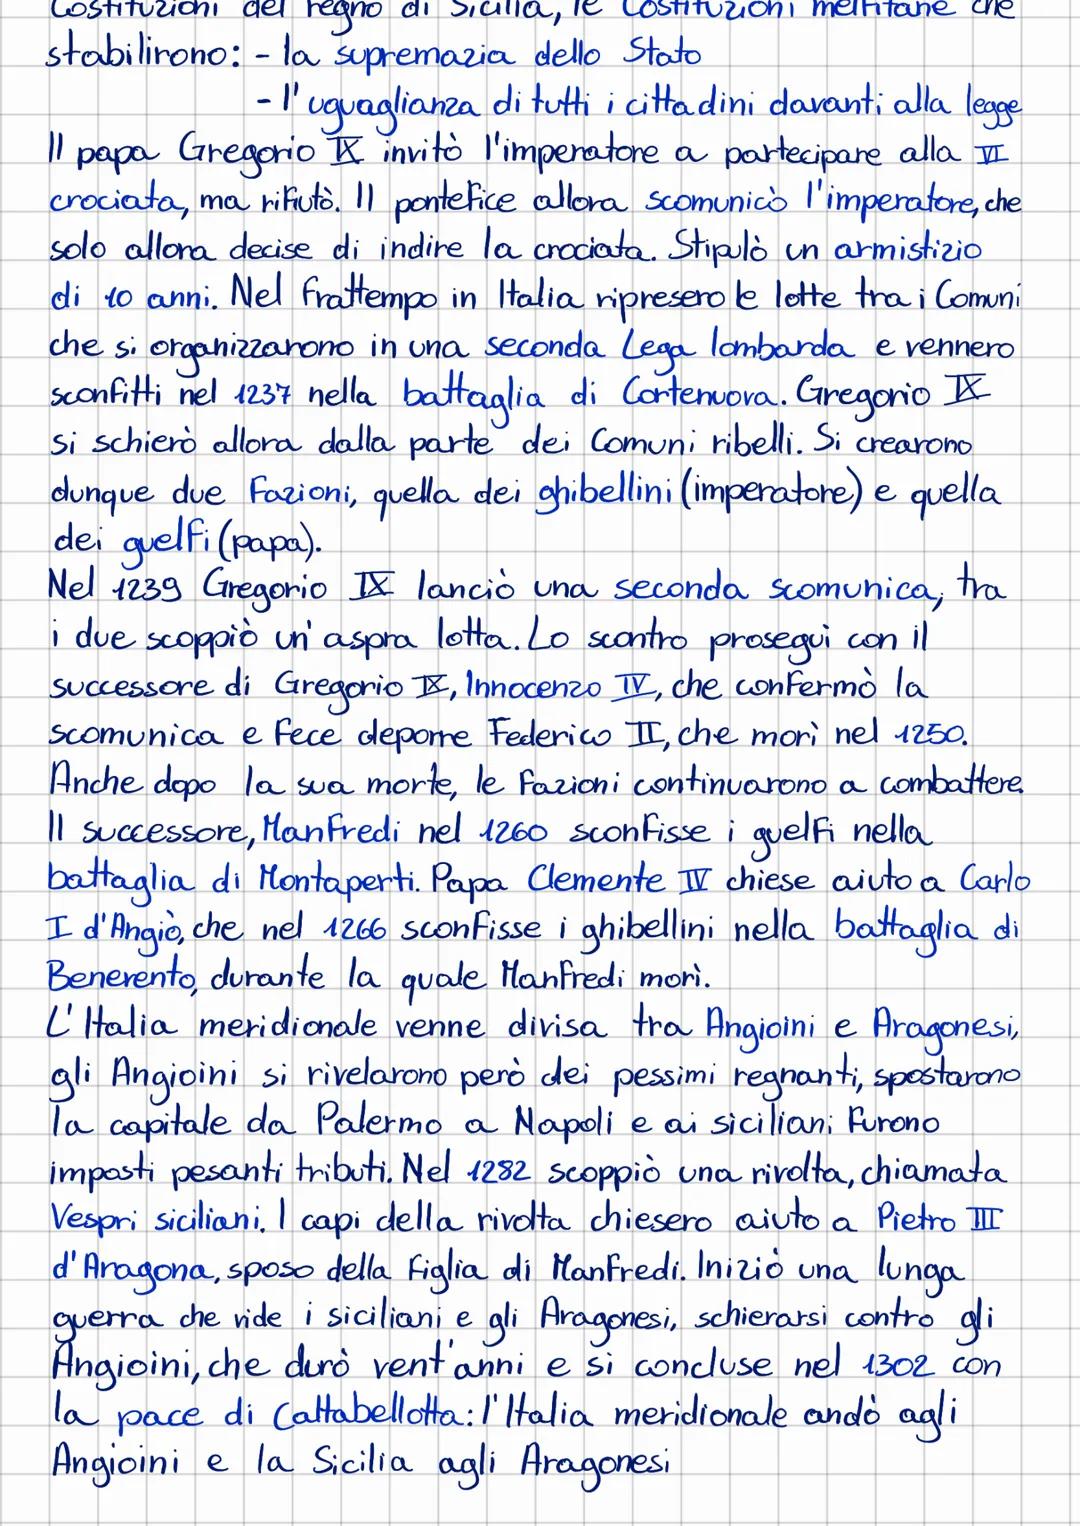 Costituzioni del regno di Sicilia, le Costituzioni melfitane che
stabilirono: - la supremazia dello Stato
- l'uguaglianza di tutti i cittadini davanti alla legge
Il papa Gregorio IX invitò l'imperatore a partecipare alla VI
crociata, ma rifiutò. Il pontefice allora scomunicò l'imperatore, che
solo allora decise di indire la crociata. Stipulò un armistizio
di 10 anni. Nel frattempo in Italia ripresero le lotte tra i Comuni
che si organizzarono in una seconda Lega lombarda e vennero
sconfitti nel 1237 nella battaglia di Cortenuova. Gregorio IX
si schierò allora dalla parte dei Comuni ribelli. Si crearono
dunque due fazioni, quella dei ghibellini (imperatore) e quella
dei guelfi (papa).
Nel 1239 Gregorio IX lanciò una seconda scomunica, tra
i due scoppiò un'aspra lotta. Lo scontro proseguì con il
successore di Gregorio IX, Innocenzo IV, che confermò la
scomunica e fece deporre Federico II, che morì nel 1250.
Anche dopo la sua morte, le fazioni continuarono a combattere.
Il successore, Manfredi nel 1260 sconfisse i guelfi nella
battaglia di Montaperti. Papa Clemente IV chiese aiuto a Carlo
I d'Angiò, che nel 1266 sconfisse i ghibellini nella battaglia di
Benevento, durante la quale Manfredi morì.
L'Italia meridionale venne divisa tra Angioini e Aragonesi,
gli Angioini si rivelarono però dei pessimi regnanti, spostarono
la capitale da Palermo a Napoli e ai siciliani furono
imposti pesanti tributi. Nel 1282 scoppiò una rivolta, chiamata
Vespri siciliani. I capi della rivolta chiesero aiuto a Pietro III
d'Aragona, sposo della figlia di Manfredi. Iniziò una lunga
guerra che vide i siciliani e gli Aragonesi, schierarsi contro gli
Angioini, che durò vent'anni e si concluse nel 1302 con
la pace di Caltabellotta: l'Italia meridionale andò agli
Angioini e la Sicilia agli Aragonesi